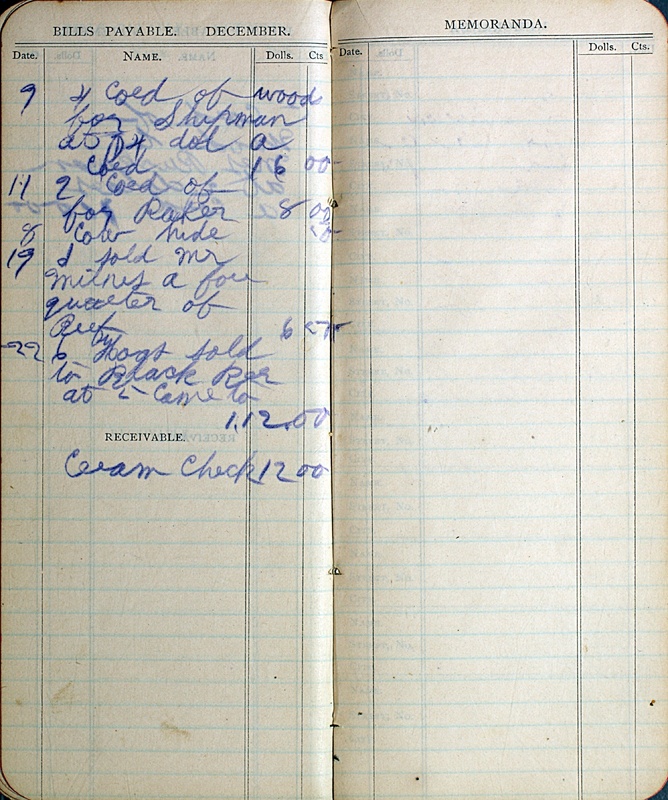 BILLS PAYABLE. DECEMBER.
Date. NAME. Dolls. Cts
9 4 Cord of wood
for Shipman
at 4 dol a
Cord 16 00
11 2 Cord of
for Baker 8 00
8 Cow hide
19 I sold Mr
Milnes a four
quarter of
Beef 6
22 6 Hogs sold
to Black Ber
at Came to
1.12.00
RECEIVABLE.
Cream Check 12 00
MEMORANDA.
Date. Dolls. Cts.